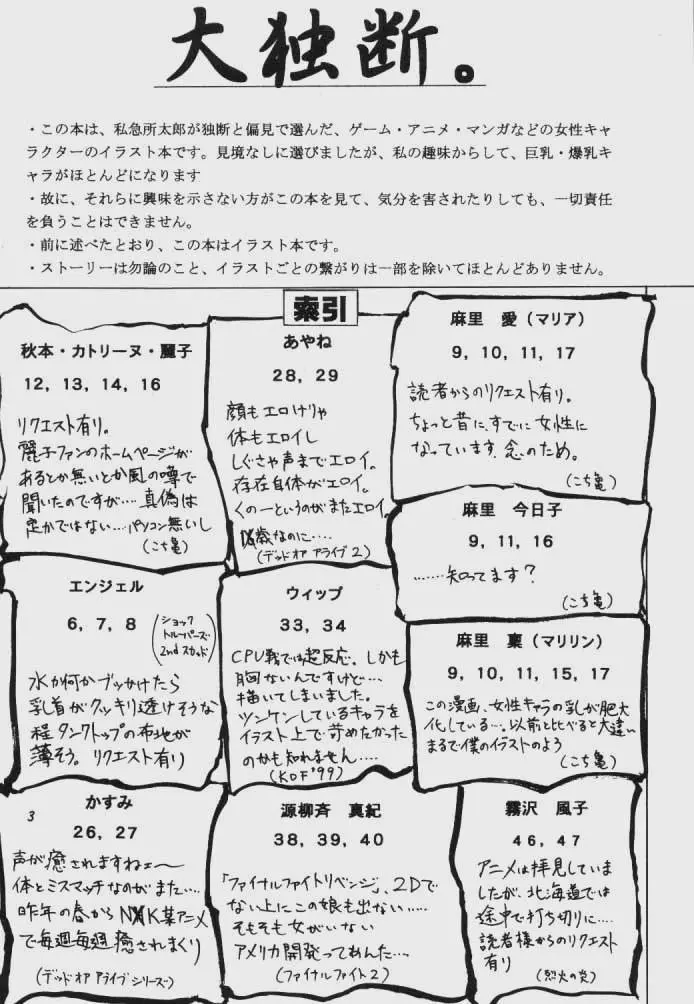 大独断。
・この本は、私急所太郎が独断と偏見で選んだ、ゲーム・アニメ・マンガなどの女性キャ
ラクターのイラスト本です。見境なしに選びましたが、私の趣味からして、巨乳・爆乳キ
ャラがほとんどになります
・故に、それらに興味を示さない方がこの本を見て、気分を害されたりしても、一切責任
を負うことはできません。
・前に述べたとおり、この本はイラスト本です。
・ストーリーは勿論のこと、イラストごとの繋がりは一部を除いてほとんどありません。
索引
秋本・カトリーヌ・麗子
12, 13, 14, 16
リクエスト有り。
麗子ファンのホームページが
あるとか無いとか風の噂で
聞いたのですが…. 真偽は
定かではない…パソコン無いし
(こち亀)
あやね
28, 29
顔もエロけりゃ
体もエロイし
しぐさや声までエロイ。
存在自体がエロイ。
くの一というのがまたエロイ。
歳なのに….
(デッド オア アライブ2)
麻里 愛(マリア)
9, 10, 11, 17
読者からのリクエスト有り。
ちょっと昔に、すでに女性に
なっています、念のため。
(こち亀)
麻里 今日子
9, 11, 16
……知ってます?
(こち亀)
エンジェル
6, 7, 8
(ショック
トルーパーズ
2nd スカッド)
水か何かブッかけたら
乳首がクッキリ透けそうな
程タンクトップの布地が
薄そう。リクエスト有り
ウィップ
33, 34
CPU戦では超反応、しかも
胸ないんですけど…
描いてしまいました。
ツンケンしているキャラを
イラスト上で苛めたかった
のかも知れません….
(KOF'99)
麻里 稟(マリリン)
9, 10, 11, 15, 17
この漫画、女性キャラの乳が肥大
化している…。以前と比べると大違い
まるで僕のイラストのよう
(こち亀)
3
かすみ
26, 27
声が癒されますねェ〜
体とミスマッチなのがまた….
昨年の春からNXK某アニメ
で毎週毎週癒されまくり
(デッド オア アライブ シリーズ)
源柳斉 真紀
38, 39, 40
「ファイナルファイトリベンジ」、2Dで
ない上にこの娘も出ない……
そもそも女がいない
アメリカ開発ってあんた…。
(ファイナルファイト2)
霧沢 風子
46, 47
アニメは拝見していま
したが、北海道では
途中で打ち切りに….
読者様からのリクエスト
有り
(烈火の炎)